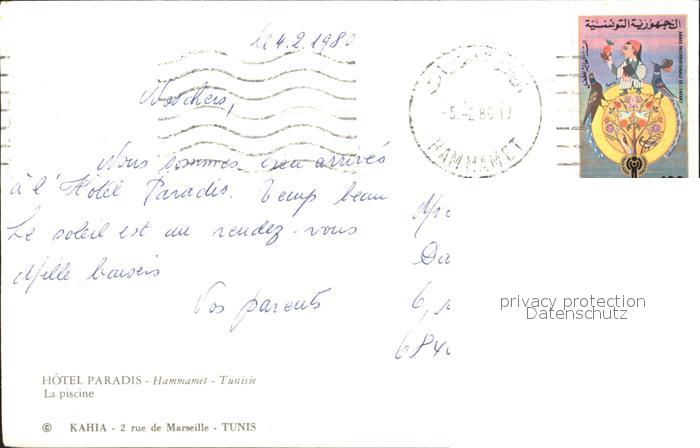 le 4.2.1980
الجمهورية التونسية
ANNEE INTERNATIONALE DE L'ENFANT
-5.-2.80.17
HAMMAMET
Nos chers,
Nous sommes bien arrivés
à l'Hôtel Paradis. Temps beau
Le soleil est au rendez-vous
Mille baisers
Vos parents
Da
6,
6840
privacy protection
Datenschutz
HÔTEL PARADIS - Hammamet - Tunisie
La piscine
© KAHIA - 2 rue de Marseille - TUNIS